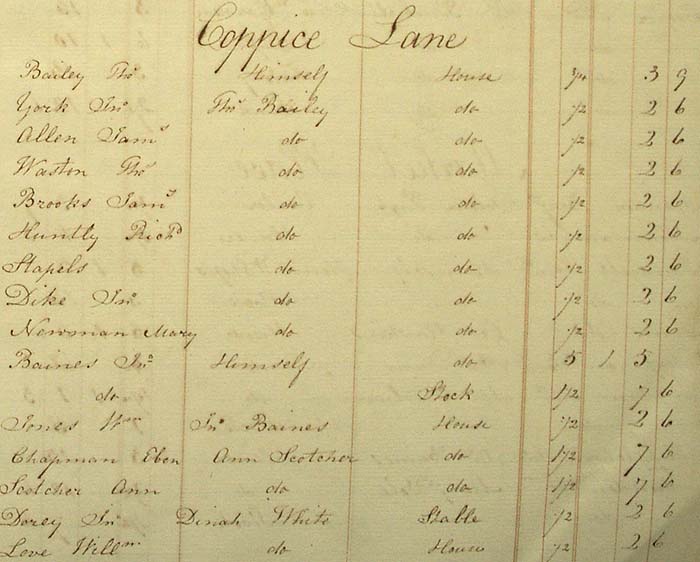 Coppice Lane
Bailey Thos Himself House 3/4 3 9
York Jno. Thos Bailey do 1/2 2 6
Allen Saml do do 1/2 2 6
Waston Thos do do 1/2 2 6
Brooks Saml do do 1/2 2 6
Huntly Richd do do 1/2 2 6
Stapels do do 1/2 2 6
Dike Jno. do do 1/2 2 6
Newman Mary do do 1/2 2 6
Baines Jno Himself do 5 1 5
do Stock 1 1/2 7 6
Jones Wm Jno Baines House 1/2 2 6
Chapman Eben Ann Scotcher do 1 1/2 7 6
Scotcher Ann do do 1 1/2 7 6
Dorey Jno Dinah White Stable 1/2 2 6
Love Willm do House 1/2 2 6